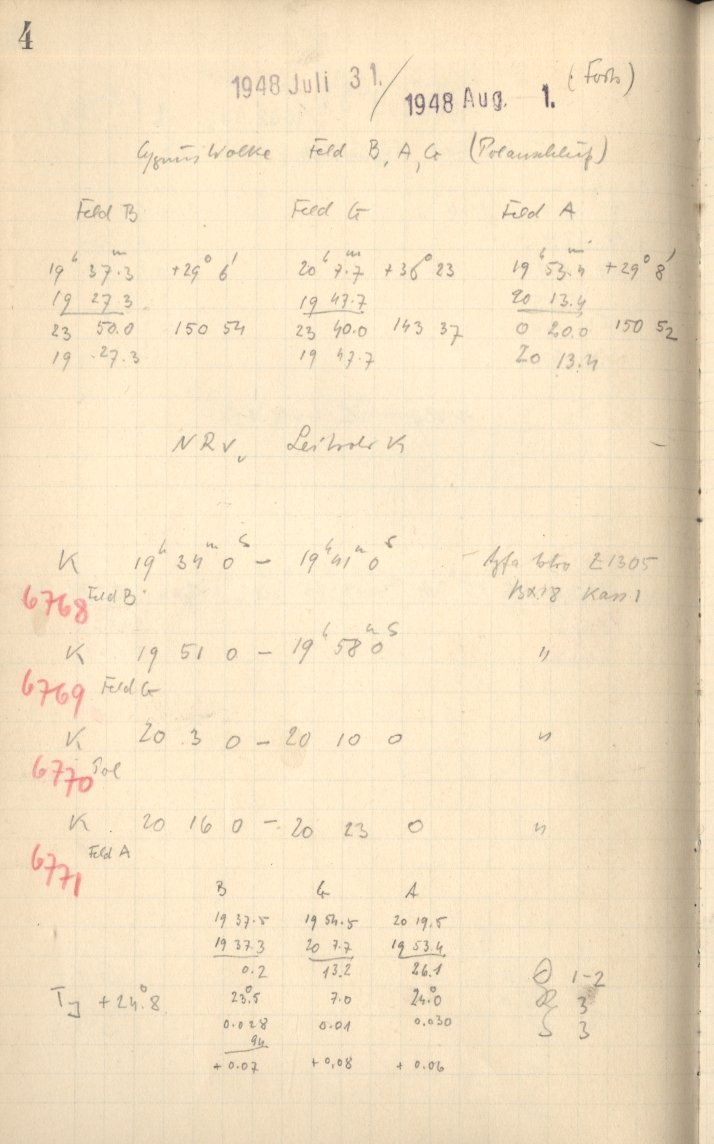 4
1948 Juli 31. / 1948 Aug. 1. (Forts)
Cygnus Wolke Feld B, A, G (Polanschluß)
Feld B Feld G Feld A
19ʰ 37ᵐ.3 +29° 6' 20ʰ 7ᵐ.7 +36° 23 19ʰ 53ᵐ.4 +29° 8'
19 27.3 19 47.7 20 13.4
23 50.0 150 54 23 40.0 143 37 0 20.0 150 52
19 27.3 19 47.7 20 13.4
K 19ʰ 34ᵐ 0ˢ – 19ʰ 41ᵐ 0ˢ Agfa 21305
6768 Feld B Kass 1
K 19 51 0 – 19ʰ 58ᵐ 0ˢ "
6769 Feld G
K 20 3 0 – 20 10 0 "
6770 Pol
K 20 16 0 – 20 23 0 "
6771 Feld A
B G A
19 37.5 19 54.5 20 19.5
19 37.3 20 7.7 19 53.4
0.2 13.2 26.1 1-2
+24°.8 23°.5 7.0 24°.0 3
0.028 0.01 0.030 3
94
+0.07 +0.08 +0.06